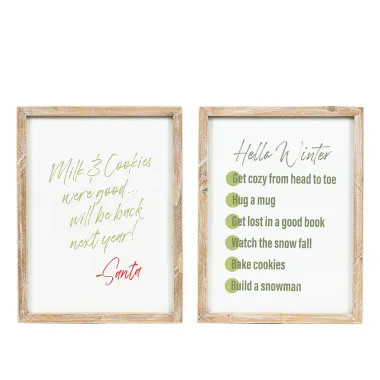 Milk & Cookies
were good...
will be back
next year!
-Santa
Hello Winter
Get cozy from head to toe
Hug a mug
Get lost in a good book
Watch the snow fall
Bake cookies
Build a snowman